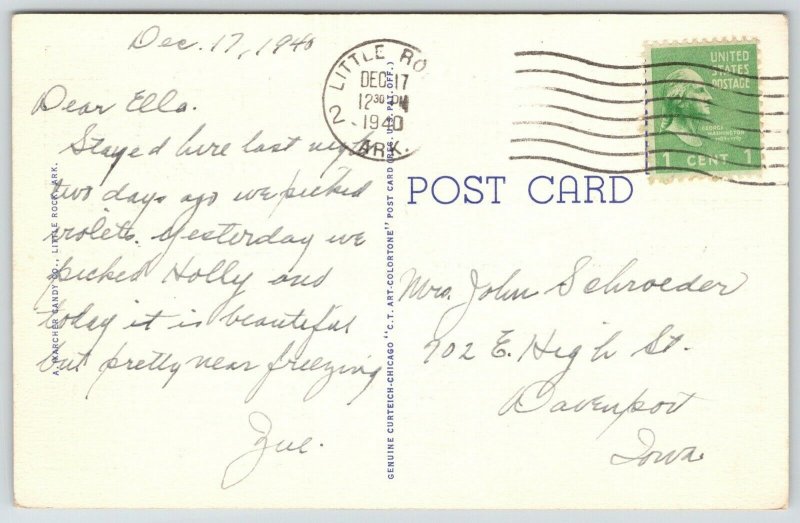 Dec. 17, 1940
Dear Ella.
Stayed here last night
two days ago we picked
violets. Yesterday we
picked Holly and
today it is beautiful
but pretty near freezing
Zue.
A. KARCHER CANDY CO., LITTLE ROCK, ARK.
GENUINE CURTEICH-CHICAGO "C.T. ART-COLORTONE" POST CARD (REG. U.S. PAT. OFF.)
LITTLE RO
DEC 17
12 30 PM
1940
2 ARK.
UNITED
STATES
POSTAGE
GEORGE
WASHINGTON
1 CENT 1
POST CARD
Mrs. John Schroeder
702 E. High St.
Davenport
Iowa